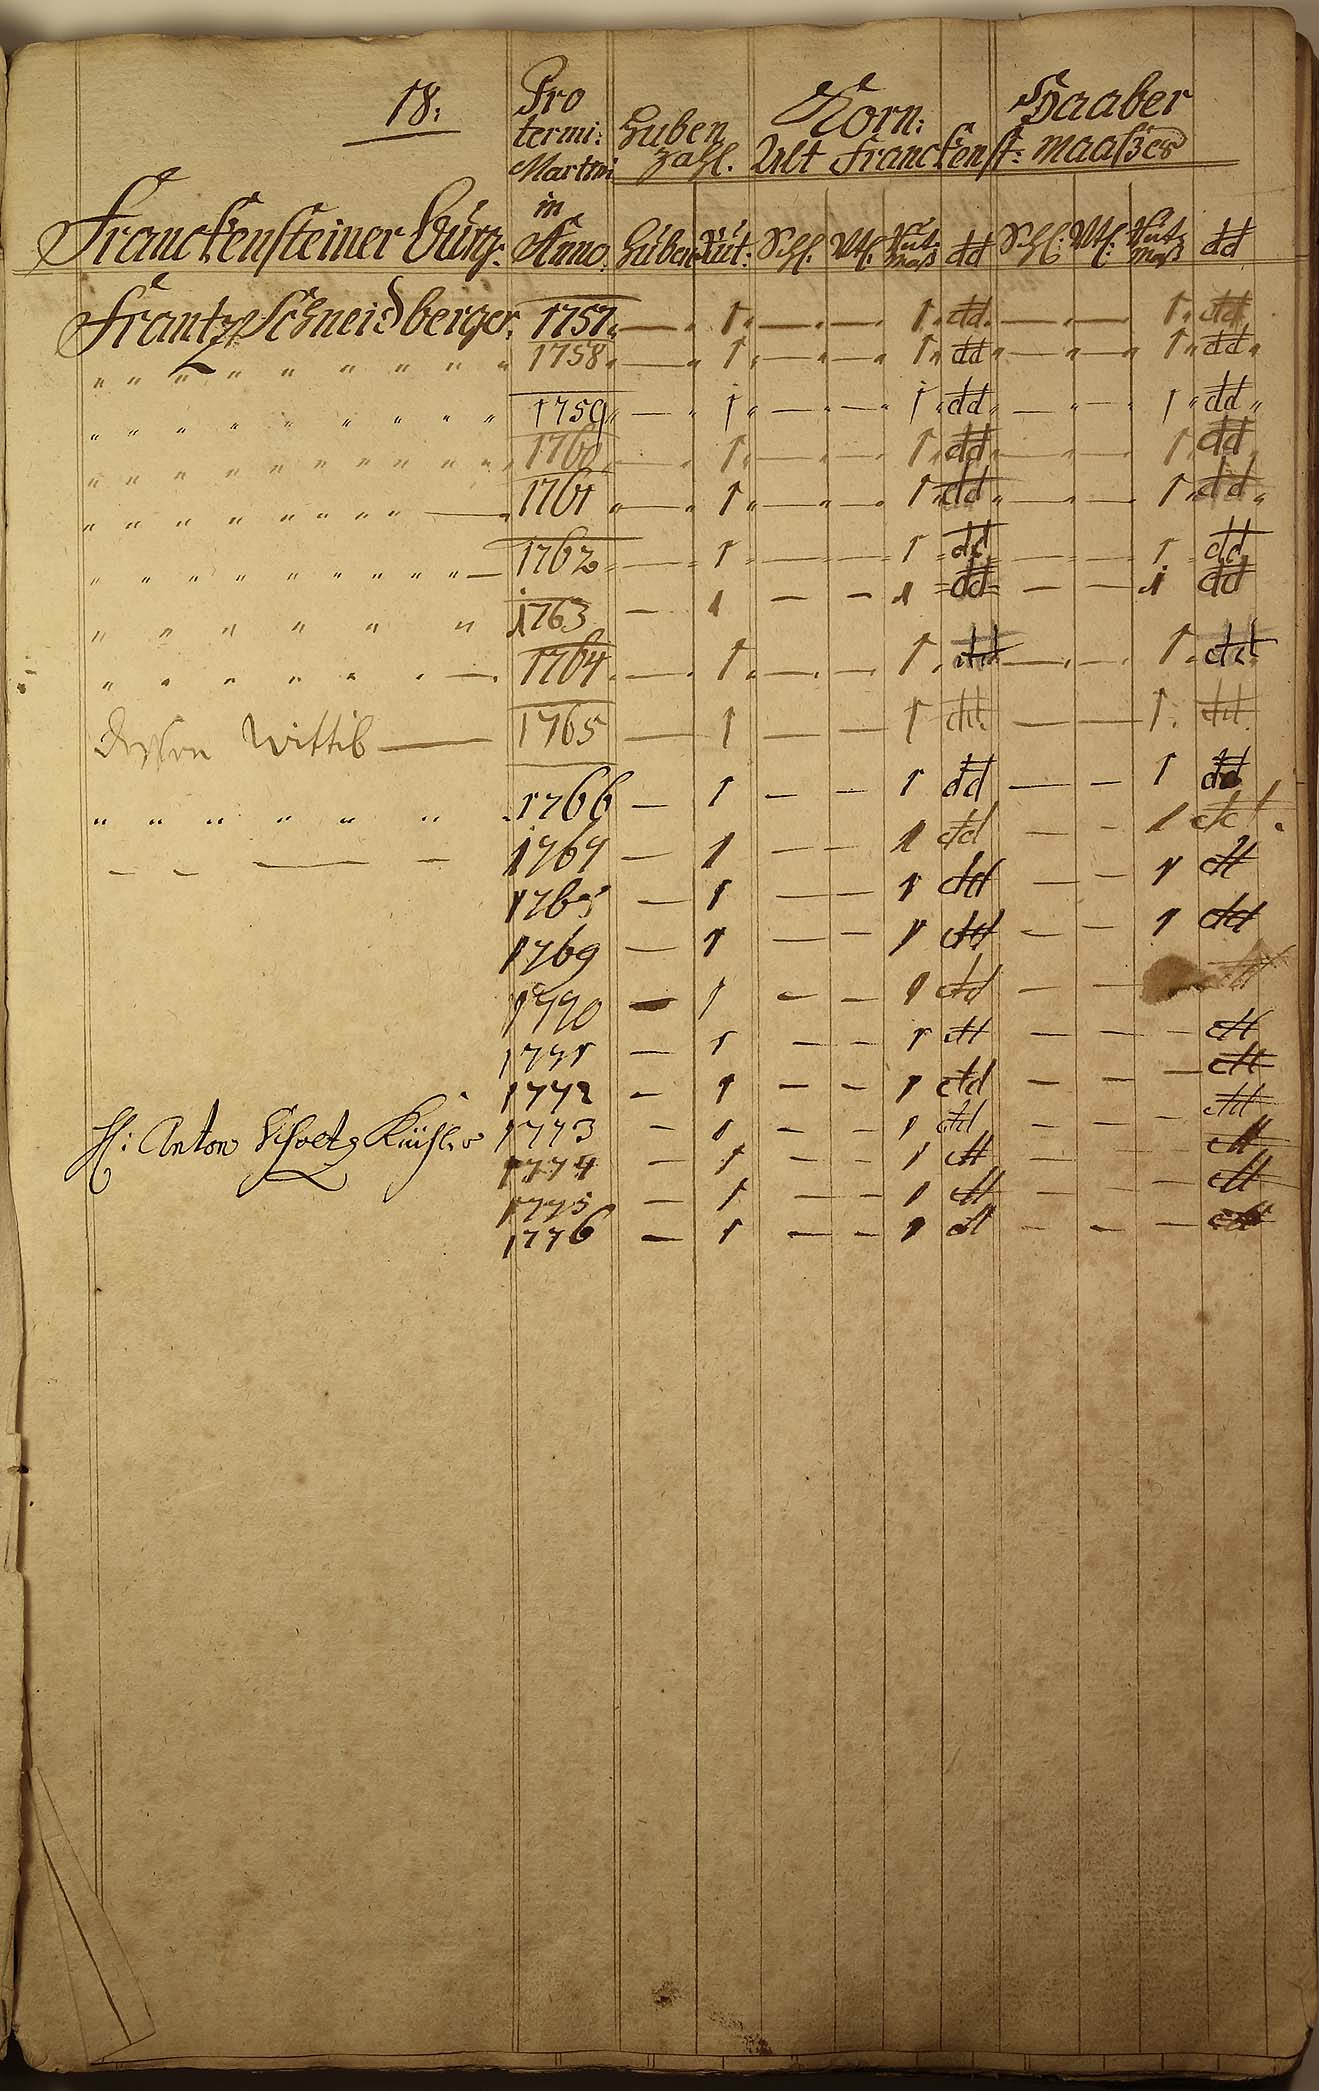 18.
Pro termi: Martini in Anno.
Huben Zahl.
Korn: Haaber
Alt Franckenst: Maaßes
Franckensteiner Bürg:
Huben Rut: Schl. Vtl. dd Schl: Vtl: dd
Frantz Schneidberger. 1757 — 1 — — 1 dd — — 1 dd
" " " " " " " " " 1758 — 1 — — 1 dd — — 1 dd
" " " " " " " " " 1759 — 1 — — 1 dd — — 1 dd
" " " " " " " " " " " " 1760 — 1 — — 1 dd — — 1 dd
" " " " " " " " " — 1761 — 1 — — 1 dd — — 1 dd
" " " " " " " " " " — 1762 — 1 — — 1 dd — — 1 dd
" " " " " " 1763 — 1 — — 1 dd — — 1 dd
" " " " " " — 1764 — 1 — — 1 dd — — 1 dd
Dessen Wittib — 1765 — 1 — — 1 dd — — 1 dd
" " " " " " 1766 — 1 — — 1 dd — — 1 dd
— — — — 1767 — 1 — — 1 dd — — 1 dd
1768 — 1 — — 1 dd — — 1 dd
1769 — 1 — — 1 dd — — 1 dd
1770 — 1 — — 1 dd — — dd
1771 — 1 — — 1 dd — — — dd
1772 — 1 — — 1 dd — — — dd
H: Anton 1773 — 1 — — 1 dd — — — dd
1774 — 1 — — 1 dd — — — dd
1775 — 1 — — 1 dd — — — dd
1776 — 1 — — 1 dd — — — dd